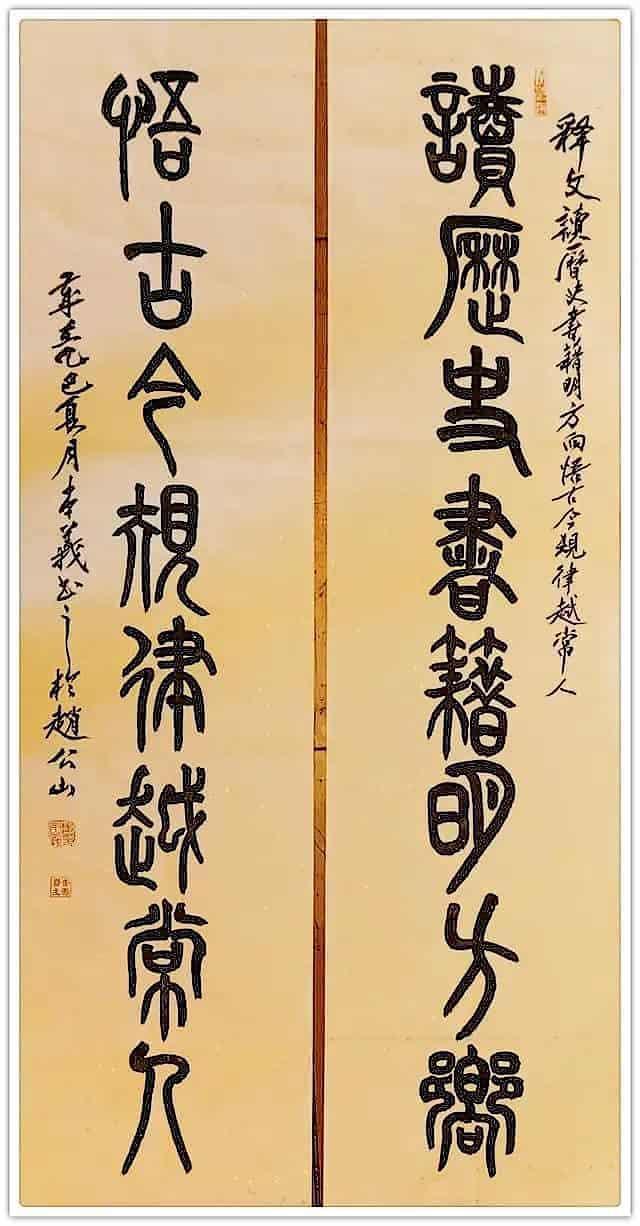 释文读历史書籍明方向悟古今规律越常人
讀歷史書籍明方嚮
悟古今規律越常人
乙巳夏月本義書之於趙公山